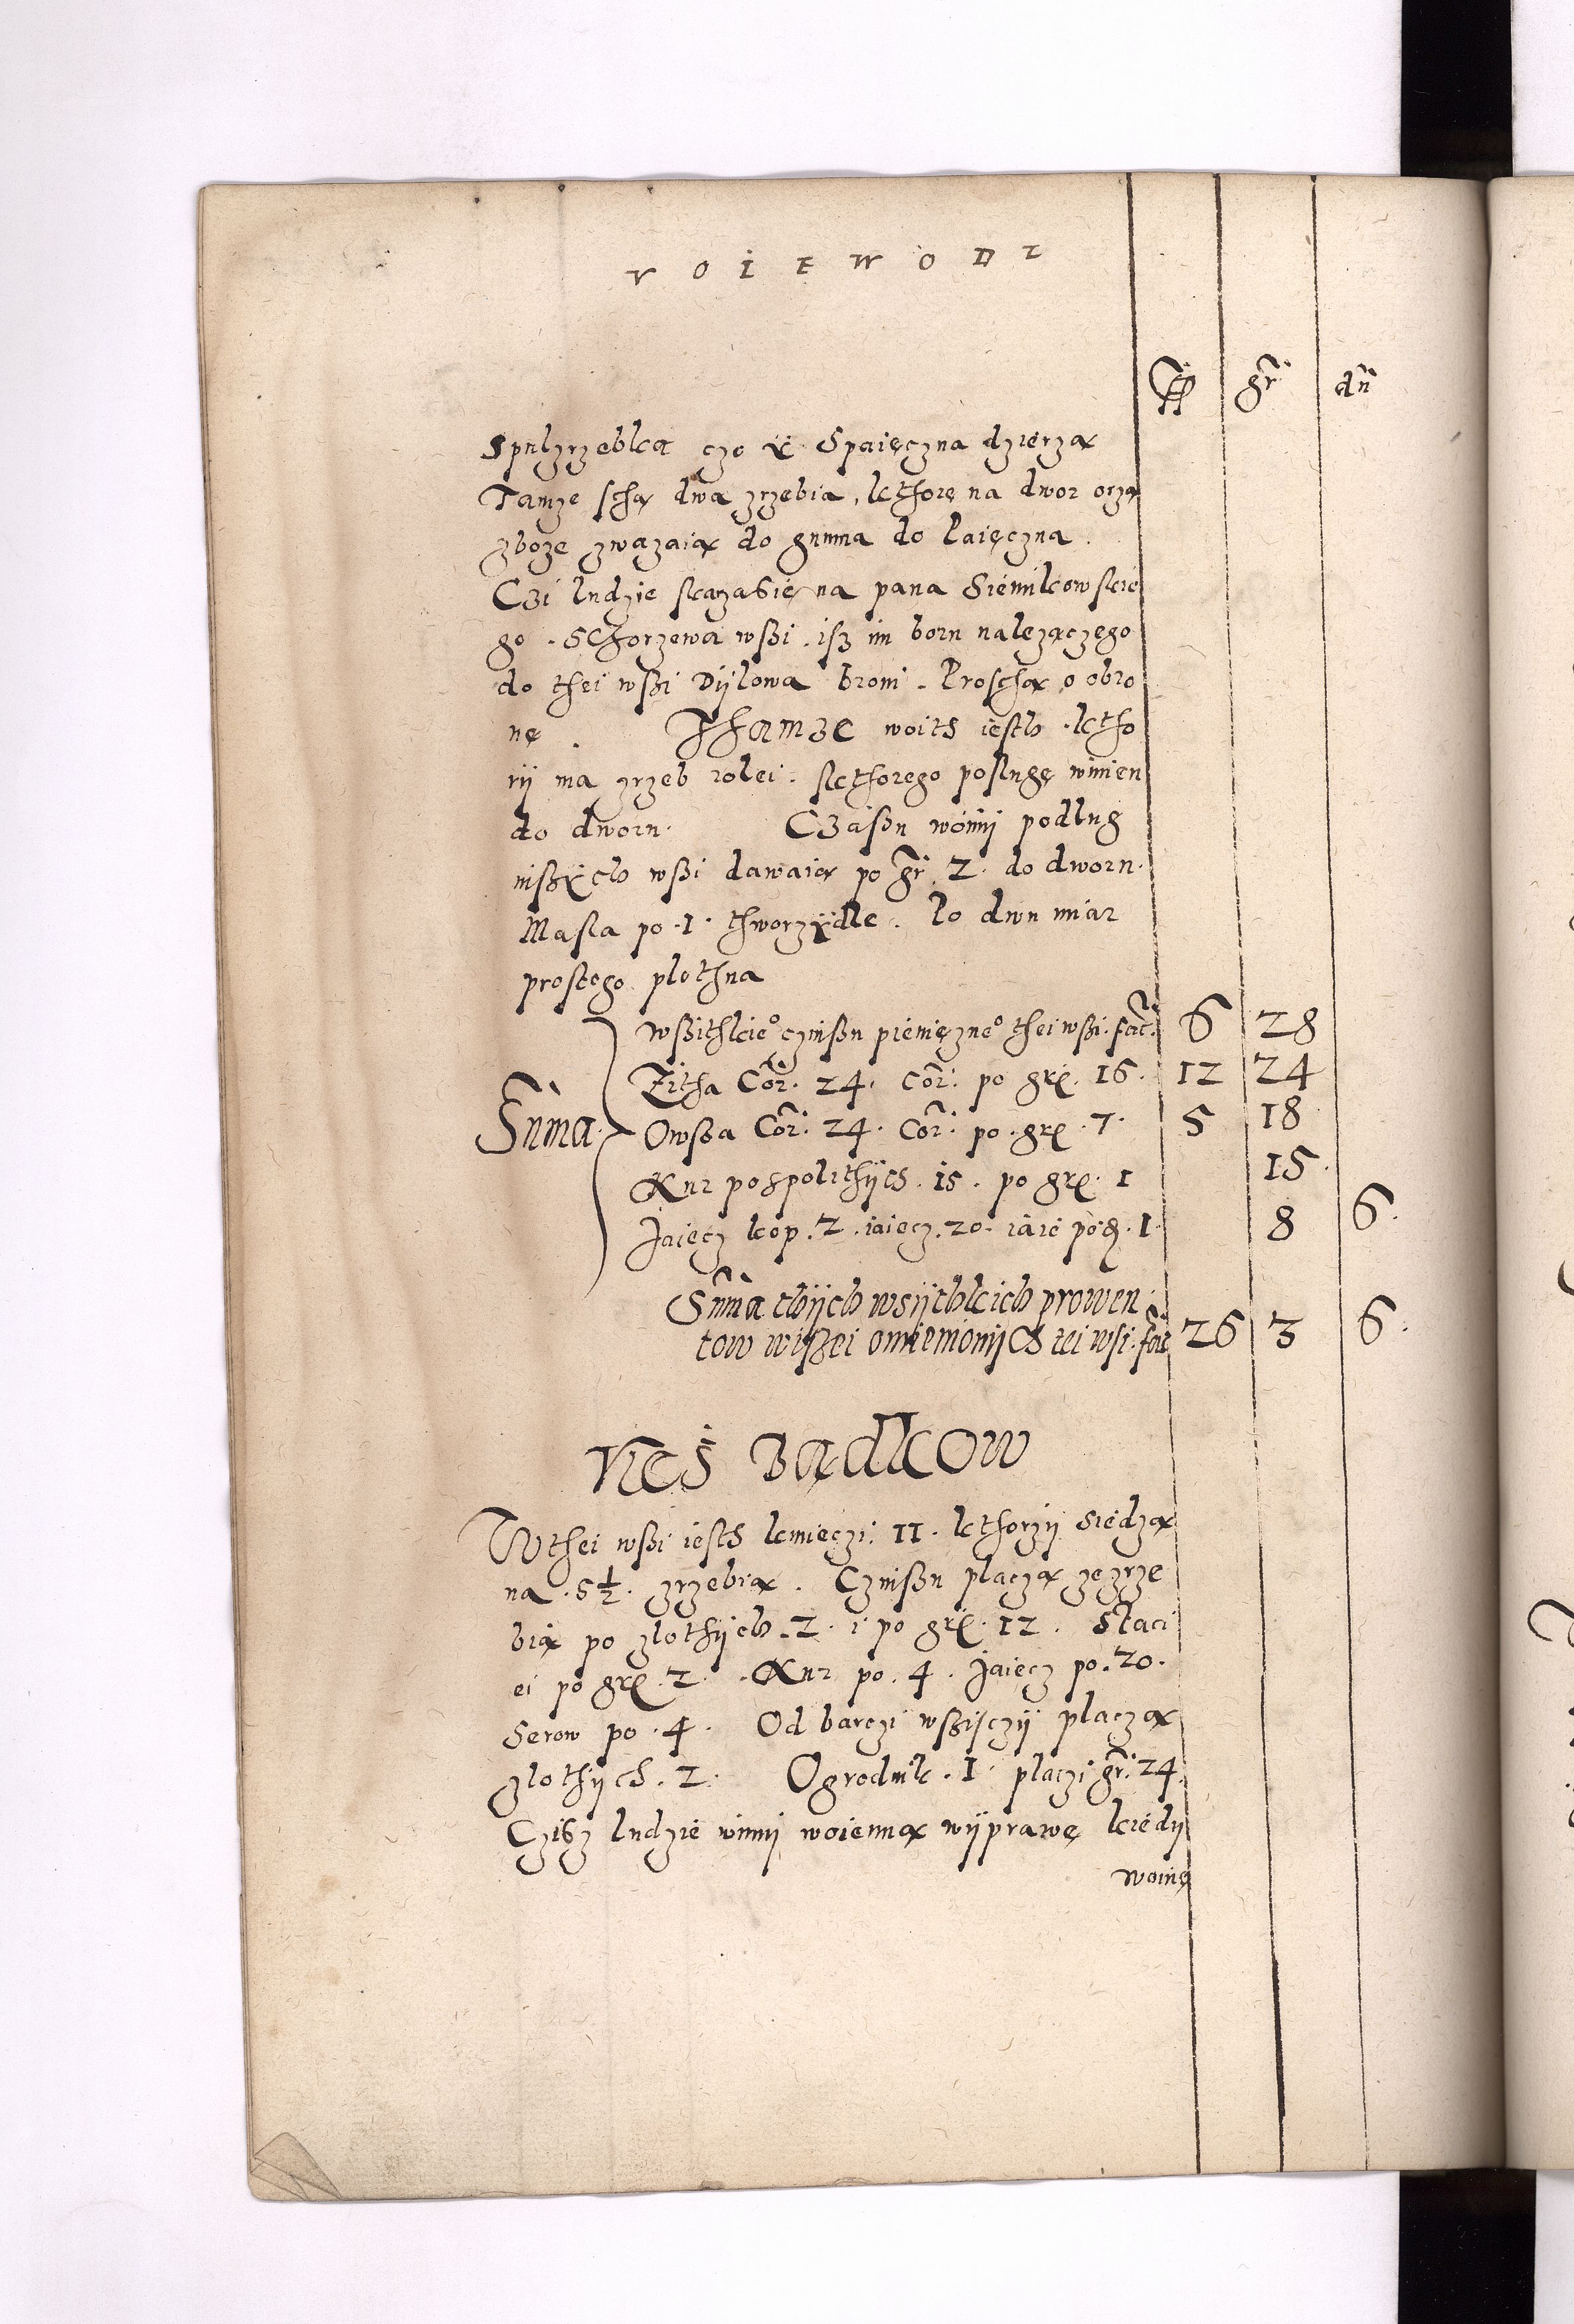 VOIEWODZ
fl gr dn
Spulzrzebka czo y Spaięczna dzierzą
Tamze schą dwa zrzebia, kthorę na dwor orzą
zboze zwazaią do gumna do Paięczna.
Czi ludzie skarzą się na pana Siemikowskie
go. Schorzewa wßi. isz im boru nalezączego
do thei wßi Dylowa broni. Proschą o obro
nę. Thamze woith iesth. ktho
rÿ ma zrzeb rolei. skthorego poslugę winien
do dworu. Czaßu woinÿ podlug
inßych wßi dawaią po gr. 2. do dworu.
Masla po .1. thworzydle. Po dwu miar
prostego plothna
Sum̃a.
Wßithkieo czinßu pienięzneo thei wßi. fac. 6 28
Zitha Cor. 24. Cor. po grẋ. 16. 12 24
Owßa Cor. 24. Cor. po. grẋ. 7. 5 18
Kur pospolithÿch. 15. po grẋ. 1 15.
Jaięcz kop. 2. iaięcz. 20. iaie po .1. 8 6.
Sum̃a thÿch wsÿthkich prowen
tow wiszei omiemionÿch tei wsi. fac 26 3 6.
Wes Bądkow
W thei wßi iesth kmieczi. 11. kthorzÿ siedzą
na .5½. zrzebią. Czinßu placzą ze zrze
bią po zlothÿch .2. i po grẋ. 12. Staci
ei po grẋ. 2. Kur po. 4. Jaięcz po. 20.
Serow po .4. Od barczi wßisczÿ placzą
zlothÿch. 2. Ogrodnik .1. placzi gr. 24.
Czisz ludzie winnÿ woienną wÿprawę kiedÿ
woinę